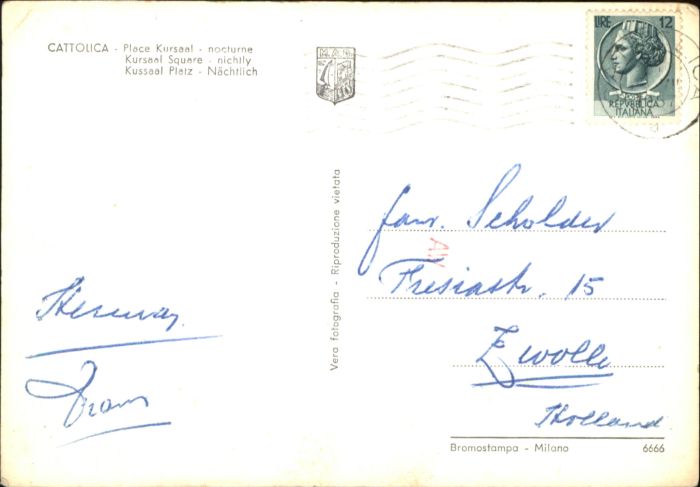 CATTOLICA - Place Kursaal - nocturne
Kursaal Square - nichtly
Kussaal Platz - Nächtlich
LIRE 12
REPVBBLICA
ITALIANA
Vera fotografia - Riproduzione vietata
fam. Scholder
Fresiastr. 15
Zwolle
Holland
Frans
Bromostampa - Milano 6666